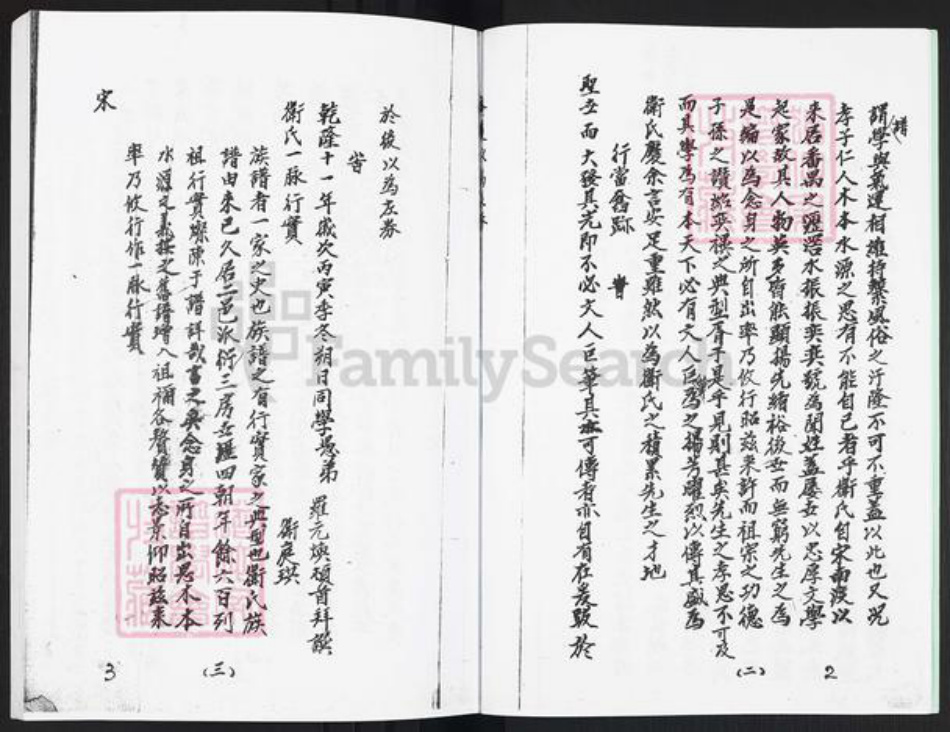 譜學與氣運相維持繫風俗之汙隆不可不重蓋以此也又況
孝子仁人木本水源之思有不能自已者乎衛氏自宋南渡以
來居番禺之瀝滘水振振奕奕號為閥姓蓋屢世以忠厚文學
起家故其人物英多賢能顯揚先緒裕後世而無窮先生之為
是編以為念身之所自出率乃攸行昭茲來許而祖宗之功德
子孫之讚紹奕禩之典型胥于是乎見則甚矣先生之孝思不可及
而其學為有本天下必有文人巨為之揚芳躍烈以傳其盛為
衛氏慶余言安足重雖然以為衛氏之積累先生之才地
行當舊跡 嘗
聖世而大發其光即不必文人巨筆具亦可傳者亦自有在爰毀於
於後以為左券
乾隆十一年歲次丙寅季冬朔日同學愚弟 羅元煥頓首拜撰
衛氏一脈行實 衛展琪
族譜者一家之史也族譜之有行實家之典型也衛氏族
譜由來已久居二邑派衍三房世歷四朝年餘六百列
祖行實燦陳于譜詳哉言之矣念身之所自出思木本
水源之義揆之舊譜增入祖禰各贅贊以志景仰昭茲來
率乃攸行作一脈行實
宋
2
(二)
(三)
3
FamilySearch